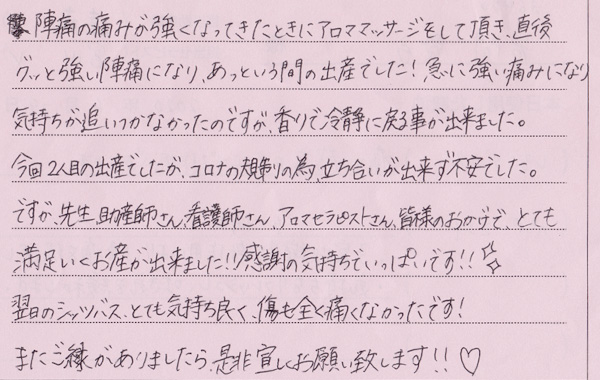 陣痛の痛みが強くなってきたときにアロママッサージをして頂き、直後
グッと強い陣痛になり、あっという間の出産でした！急に強い痛みになり
気持ちが追いつかなかったのですが、香りで冷静に戻る事が出来ました。
今回2人目の出産でしたが、コロナの規制の為、立ち合いが出来ず不安でした。
ですが、先生、助産師さん、看護師さん、アロマセラピストさん、皆様のおかげで、とても
満足いくお産が出来ました!!感謝の気持ちでいっぱいです!!
翌日のシッツバス、とても気持ち良く、傷も全く痛くなかったです！
またご縁がありましたら、是非宜しくお願い致します!!♡